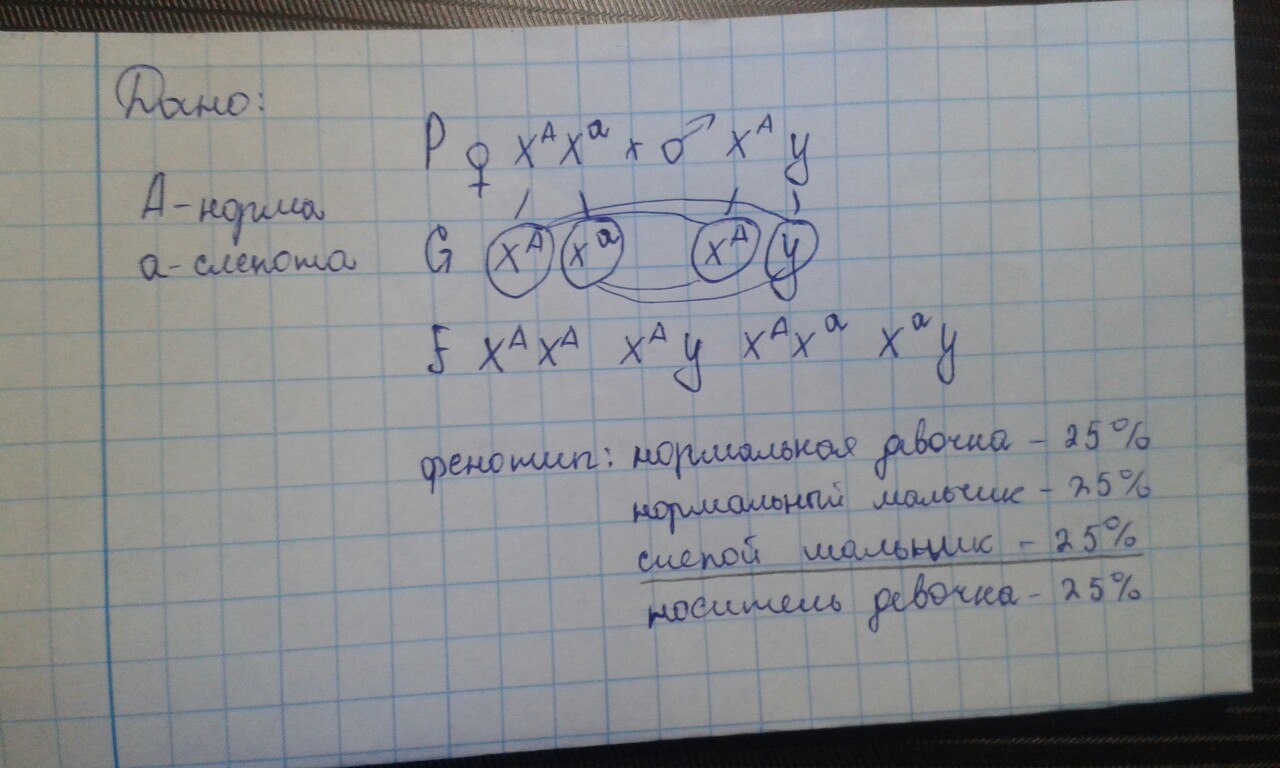 Дано:
P ♀ XᴬXᵃ × ♂ Xᴬ y
A - норма
G Xᴬ Xᵃ Xᴬ y
a - слепота
F XᴬXᴬ Xᴬy XᴬXᵃ Xᵃy
фенотип: нормальная девочка - 25%
нормальный мальчик - 25%
слепой мальчик - 25%
носитель девочка - 25%